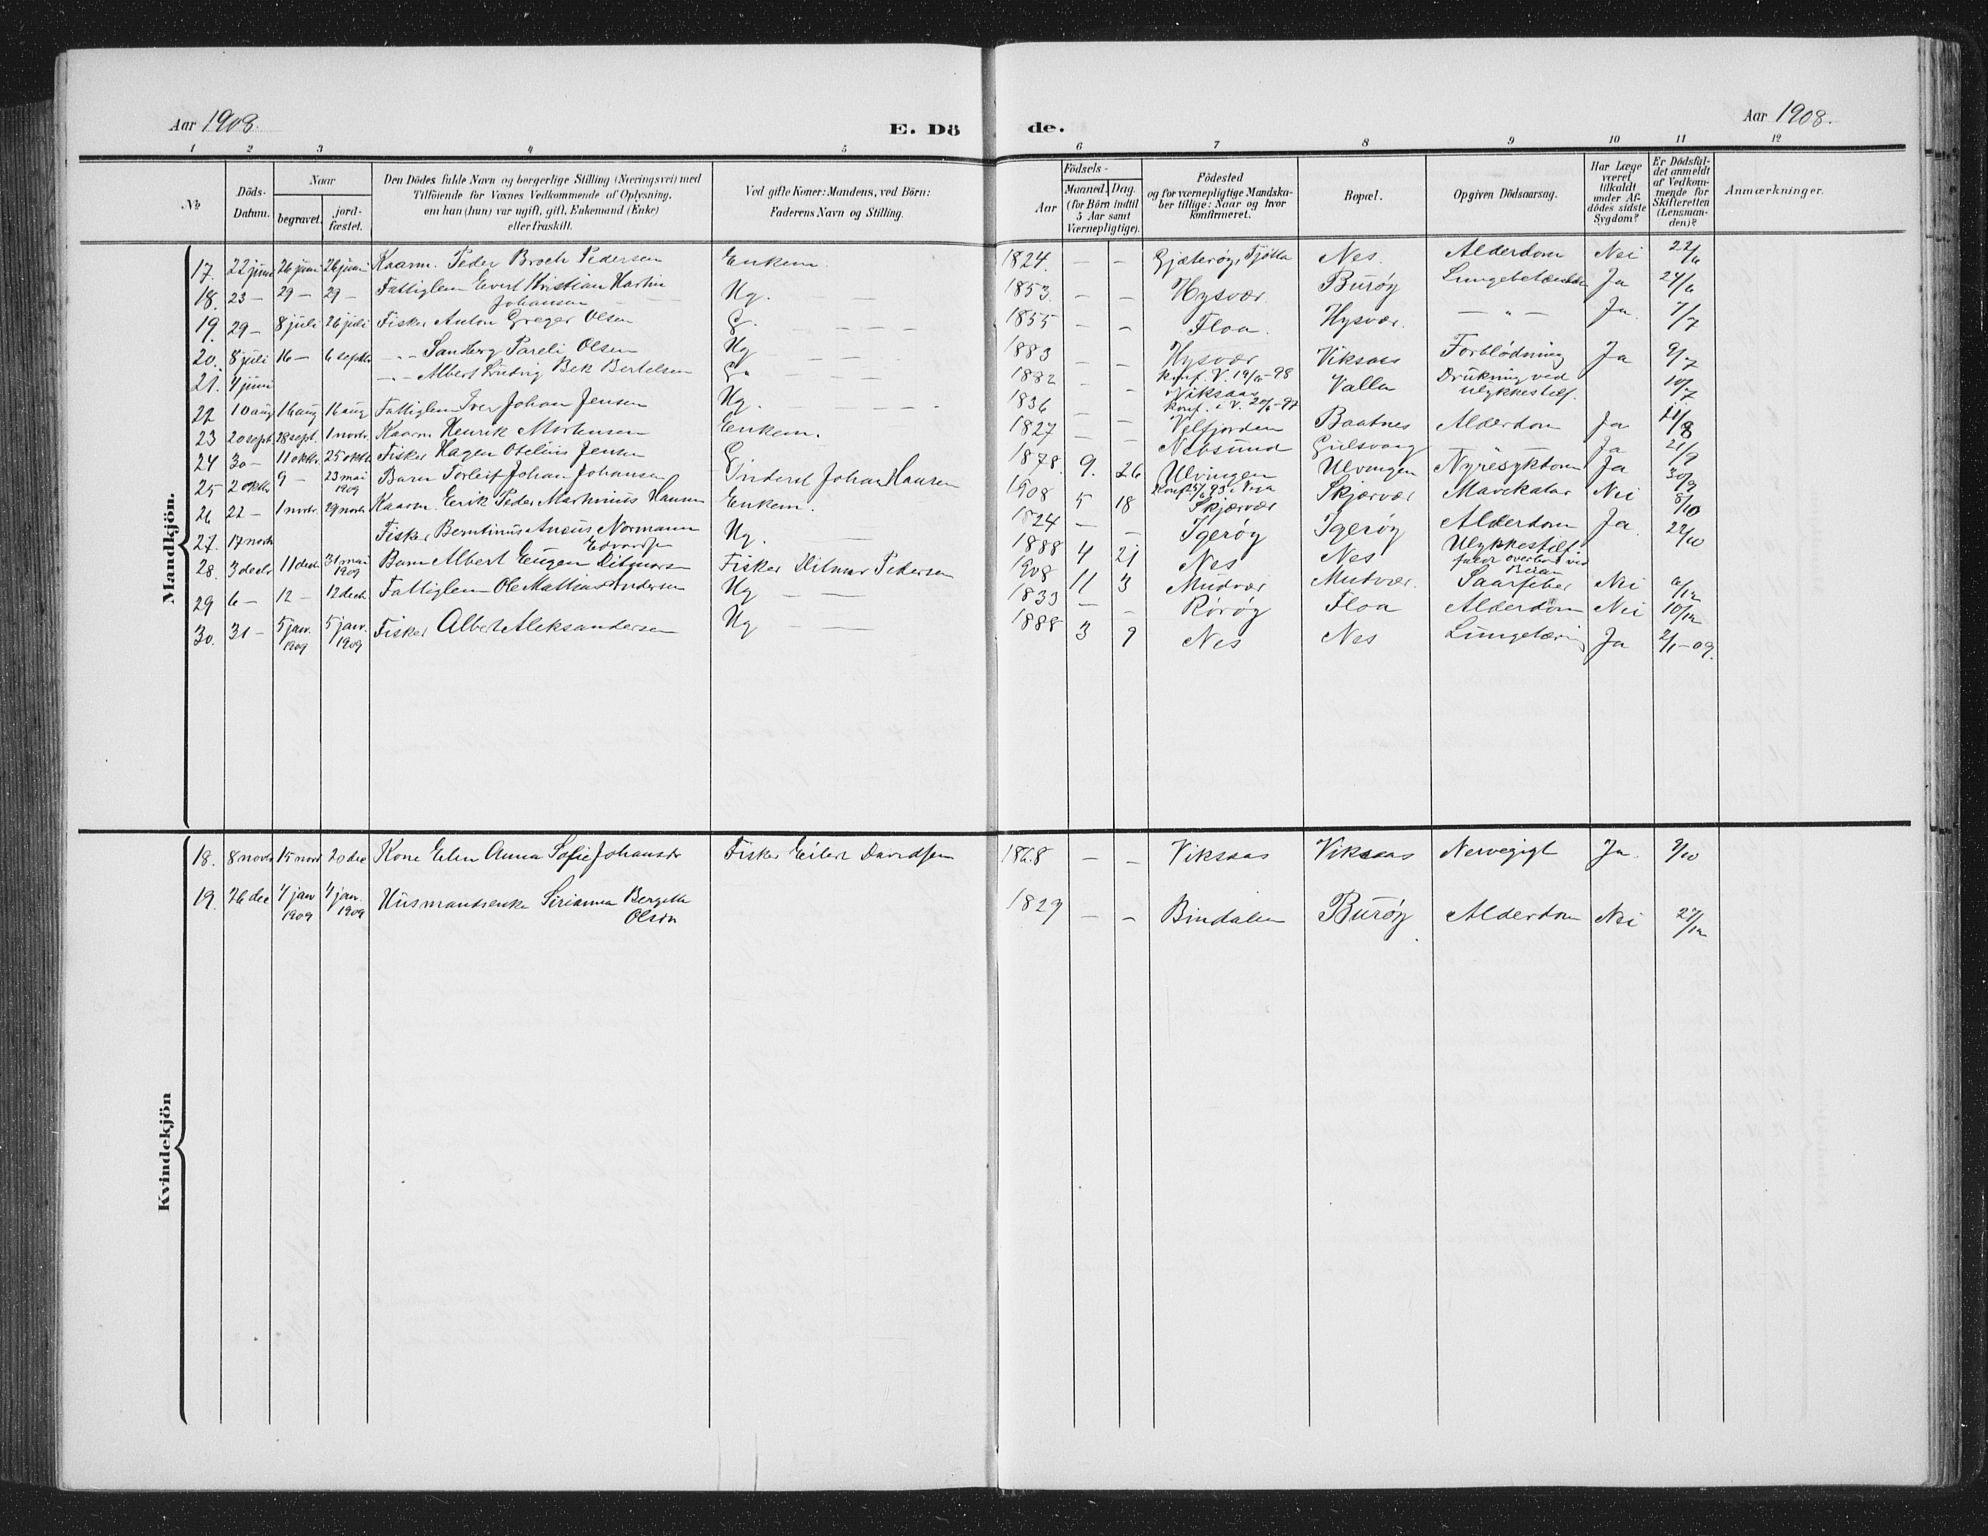 Aar 1908.
E. Dö
de.
Aar 1908.
1 2 3 4 5 6 7 8 9 10 11 12
№
Döds-Datum.
Naar
begravet.
jord-fæstet.
Den Dödes fulde Navn og borgerlige Stilling (Næringsvei) med
Tilföiende for Voxnes Vedkommende af Oplysning,
om han (hun) var ugift, gift, Enkemand (Enke)
eller fraskilt.
Ved gifte Koner: Mandens, ved Börn:
Faderens Navn og Stilling.
Födsels-
Aar
Maaned. Dag.
(for Börn indtil
5 Aar samt
Værnepligtige).
Födested
og for værnepligtige Mandska-
ber tillige: Naar og hvor
konfirmeret.
Bopæl.
Opgiven Dödsaarsag.
Har Læge
været
tilkaldt
under Af-
dödes sidste
Sygdom?
Er Dödsfal-
det anmeldt
af Vedkom-
mende for
Skifteretten
(Lensman-
den)?
Anmærkninger.
Mandkjön.
17. 22 juni 26 juni 26 juni Kaarm. Peder Broch Pedersen Enkem. 1824. — — Gjæterøy, Tjøtta Nes. Alderdom Nei 22/6
18. 23 — 29 — 29 — Fattiglem Evert Kristian Martin Johansen Ug. 1853. — — Hysvær. Burøy Lungebetændelse Ja 24/6
19. 29 — 8 juli 26 juli Fisker Anton Greger Olsen G. 1855 — — Floa. Hysvær. — „ — Ja. 1/7
20. 8 juli 16 — 6 septbr — „ — Olsen Ug 1883 — — Hysvær konf. V. 19/6-98 Viksaas Forblødning Ja 9/7
21. 4 juni — „ — Albert Ludvig Bek Bertelsen 1882 — — Viksaas konf. i V. Valla Drukning ved ulykkestilf. 10/7
22 10 aug 16 aug 16 aug Fattiglem Iver Johan Jensen Ug. 1836 — — Velfjorden Baatnes Alderdom Ja
23 20 sept. 28 sept. 1 novbr. Kaarm Henrik Mortensen Enkem. 1827 — — Nebsund Gulsvaag — „ — Ja 21/9
24 30 — 11 oktbr 25 oktbr Fisker Hagen Otelius Jensen G 1878. 9. 26 Ulvingen Ulvingen Nyresykdom Ja 30/9
25 2 oktbr 9 — 23 mai 1909 Barn Torleif Johan Johansen Inderst Johan Hansen 1908 5 18 Skjærvær Skjærvær Mavekatar Nei 8/10
26 22 — 1 novbr. 29 novbr. Kaarm. Erik Peder Martinius Hansen Enkem. 1824 — — Igerøy Igerøy Alderdom Ja. 22/10
27. 17 novb Fisker Berntinus Normann Edvardsen Ug. 1888 4 21 Nes Nes Ulykkestilf.
28. 3 decbr 11 decb 31 mai 1909 Barn Albert Eugen Ditmarsen Fisker Ditmar Pedersen 1908 11 3 Mudvær Mudvær. Nei 6/12
29 6 — 12 — 12 decb. Fattiglem Ole Mathias Andersen Ug 1833 — — Rørøy Floa Alderdom Nei 10/12
30. 31 — 5 jan. 1909 5 jan. 1909 Fisker Albert Aleksandersen Ug 1888 3 9 Nes Nes Lungetæring Ja 2/1-09.
Kvindekjön
18. 8 novb 15 nov 20 dec Kone Elen Anna Sofie Johansdr Fisker Eilert Davidsen 1868 — — Viksaas Viksaas Nervegigt Ja. 9/10
19. 26 dec 4 jan 1909 4 jan. 1909 Husmandsenke Sirianna Bergitta Olsen 1829 — — Bindalen Burøy Alderdom Nei 27/12